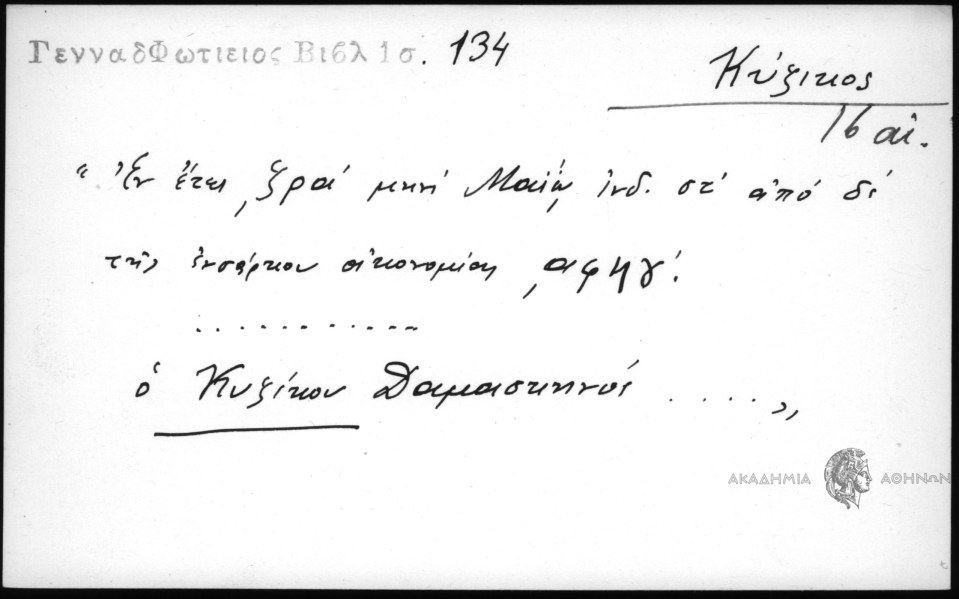 ΓενναδΦωτιειος Βιβλ 1σ. 134
Κύζικος
16 αἰ.
“Ἐν ἔτει ͵ζρα΄ μηνὶ Μαΐῳ ἰνδ. στ΄ ἀπό δέ
τῆς ἐνσάρκου οἰκονομίας ͵αφϟγ΄.
............
ὁ Κυζίκου Δαμασκηνός ....,,
ΑΚΑΔΗΜΙΑ ΑΘΗΝΩΝ